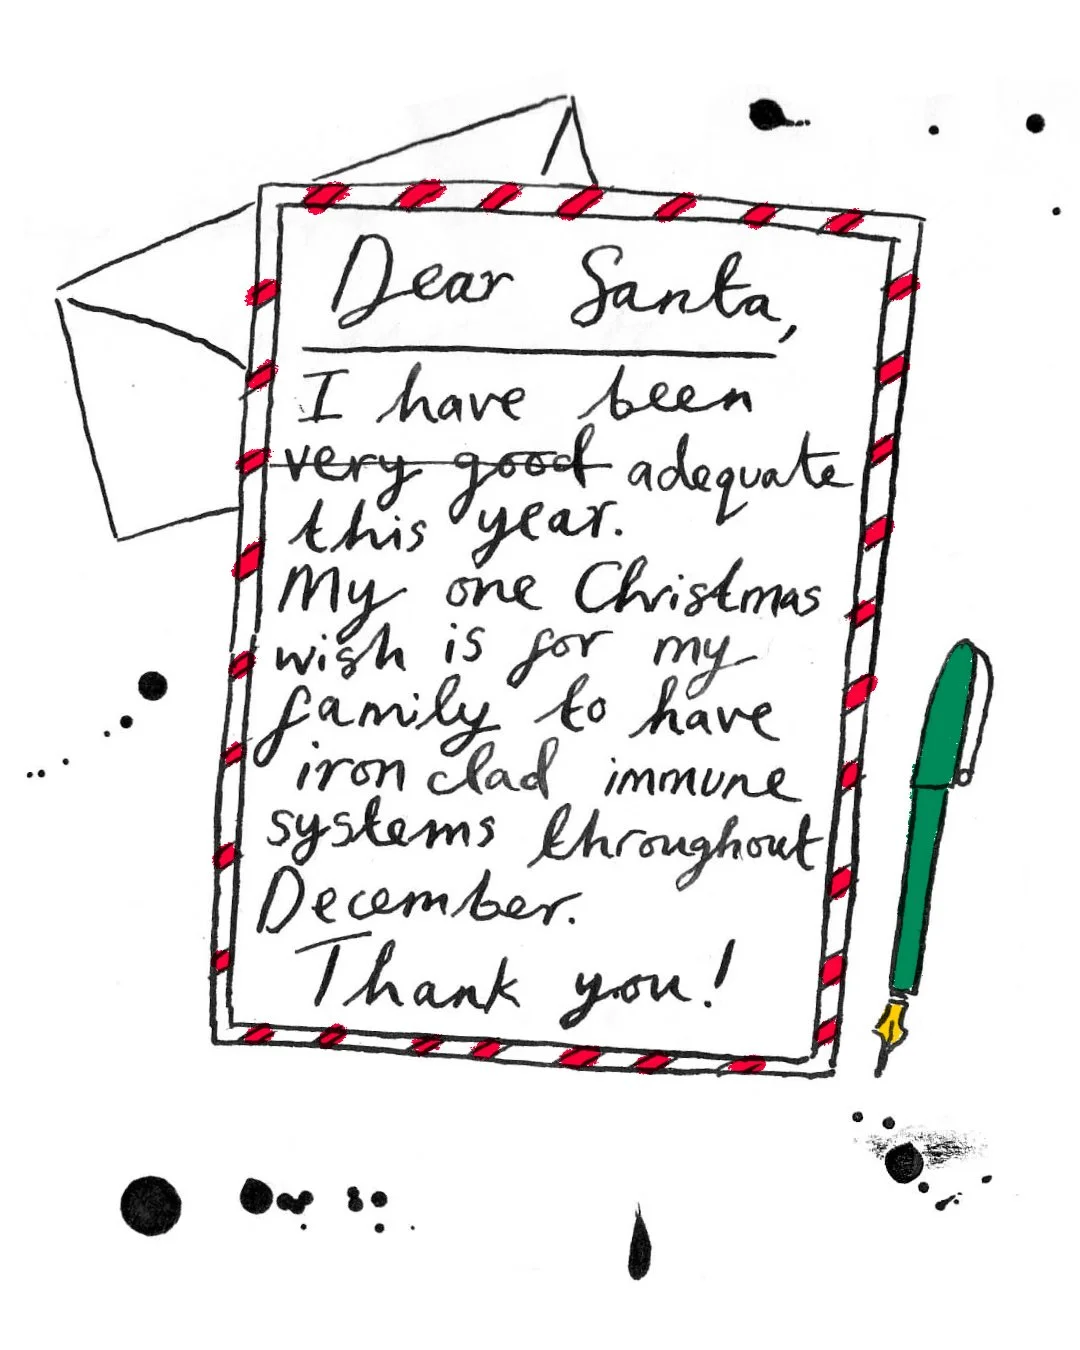 Dear Santa,
I have been
very good adequate
this year.
My one Christmas
wish is for my
family to have
iron clad immune
systems throughout
December.
Thank you!